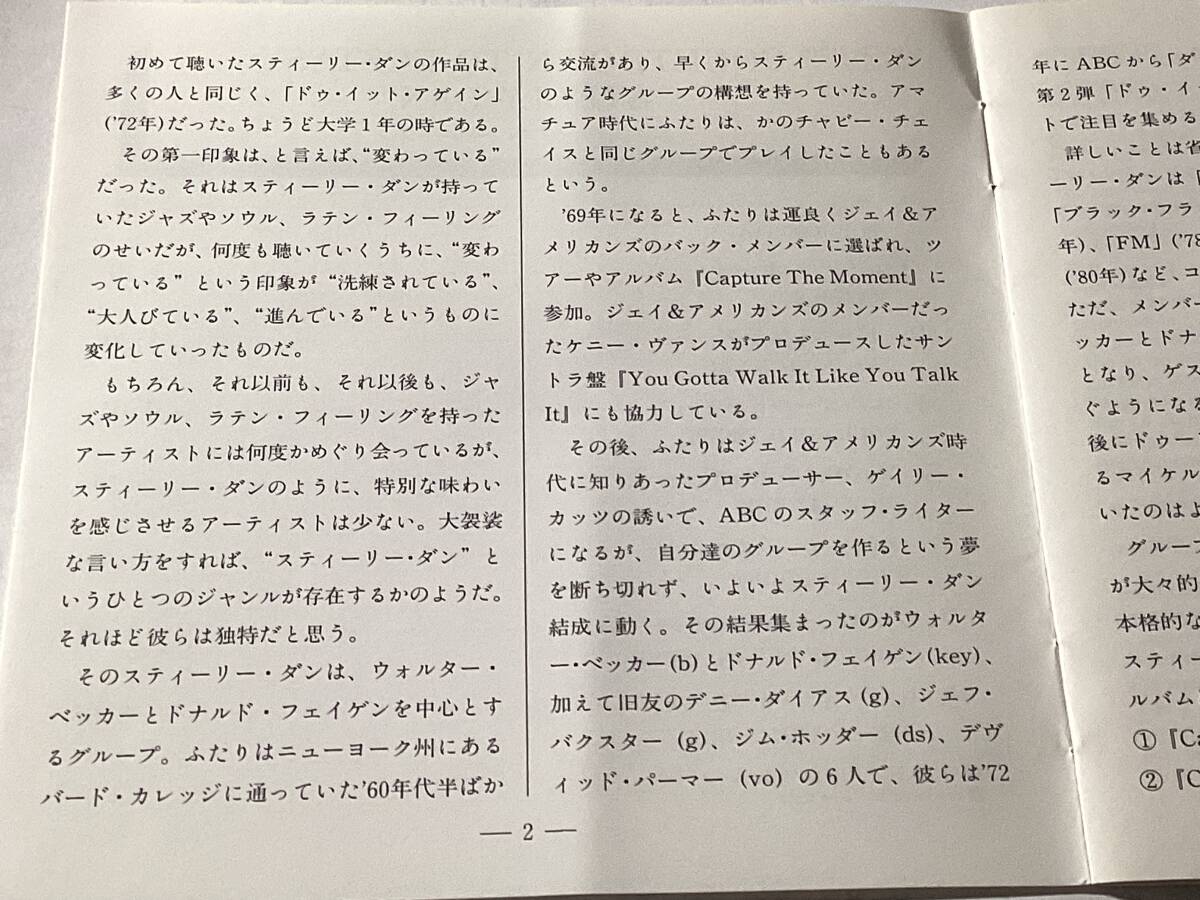 初めて聴いたスティーリー・ダンの作品は、
多くの人と同じく、「ドゥ・イット・アゲイン」
('72年)だった。ちょうど大学1年の時である。
その第一印象は、と言えば、“変わっている”
だった。それはスティーリー・ダンが持って
いたジャズやソウル、ラテン・フィーリング
のせいだが、何度も聴いていくうちに、“変わ
っている”という印象が“洗練されている”、
“大人びている”、“進んでいる”というものに
変化していったものだ。
もちろん、それ以前も、それ以後も、ジャ
ズやソウル、ラテン・フィーリングを持った
アーティストには何度かめぐり会っているが、
スティーリー・ダンのように、特別な味わい
を感じさせるアーティストは少ない。大袈裟
な言い方をすれば、“スティーリー・ダン”と
いうひとつのジャンルが存在するかのようだ。
それほど彼らは独特だと思う。
そのスティーリー・ダンは、ウォルター・
ベッカーとドナルド・フェイゲンを中心とす
るグループ。ふたりはニューヨーク州にある
バード・カレッジに通っていた'60年代半ばか
ら交流があり、早くからスティーリー・ダン
のようなグループの構想を持っていた。アマ
チュア時代にふたりは、かのチャビー・チェ
イスと同じグループでプレイしたこともある
という。
'69年になると、ふたりは運良くジェイ&ア
メリカンズのバック・メンバーに選ばれ、ツ
アーやアルバム『Capture The Moment』に
参加。ジェイ&アメリカンズのメンバーだっ
たケニー・ヴァンスがプロデュースしたサン
トラ盤『You Gotta Walk It Like You Talk
It』にも協力している。
その後、ふたりはジェイ&アメリカンズ時
代に知りあったプロデューサー、ゲイリー・
カッツの誘いで、ABCのスタッフ・ライター
になるが、自分達のグループを作るという夢
を断ち切れず、いよいよスティーリー・ダン
結成に動く。その結果集まったのがウォルタ
ー・ベッカー(b)とドナルド・フェイゲン(key)、
加えて旧友のデニー・ダイアス(g)、ジェフ・
バクスター(g)、ジム・ホッダー(ds)、デヴ
ィッド・パーマー(vo)の6人で、彼らは'72
— 2 —
年にABCから「ダ
第2弾「ドゥ・イ
トで注目を集める
詳しいことは省
ーリー・ダンは「
「ブラック・フラ
年)、「FM」('78
('80年)など、コ
ただ、メンバ
ッカーとドナ
となり、ゲス
ぐようになる
後にドゥー
るマイケル
いたのはよ
グループ
が大々的
本格的な
スティー
ルバム
①『Ca
②『C